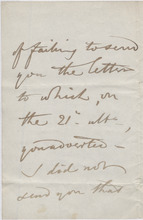 of failing to send
you the letter
to which, on
the 21st ult.,
you adverted –
I did not
send you that